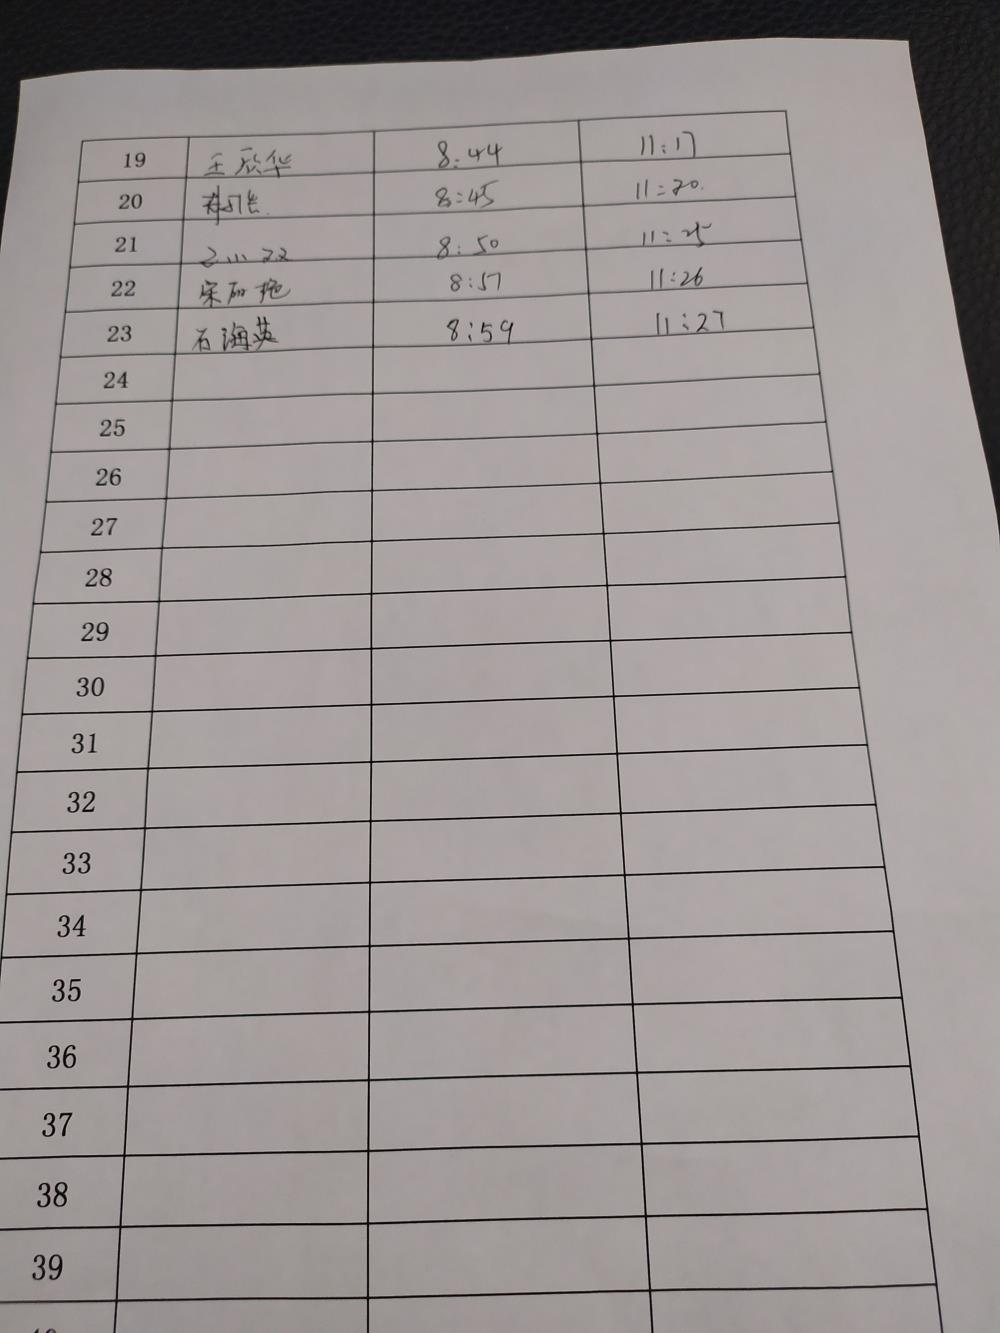 19 王欣华 8:44 11:17
20 8:45 11:20.
21 8:50 11:25
22 宋丽艳 8:57 11:26
23 石海英 8:59 11:27
24
25
26
27
28
29
30
31
32
33
34
35
36
37
38
39